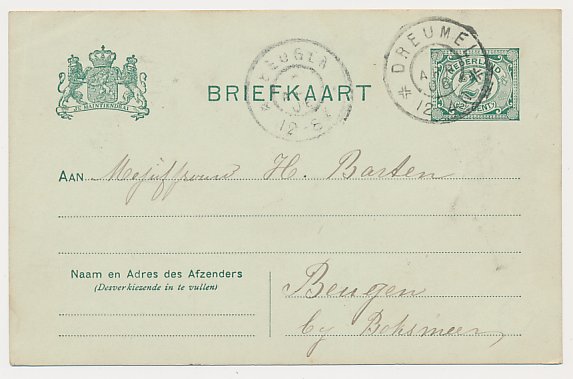 DREUMEL
BEUGEN
NEDERLAND
2½
CENT
JE MAINTIENDRAI
BRIEFKAART
12-
AAN Mejuffrouw H. Barten
Naam en Adres des Afzenders
(Desverkiezende in te vullen)
Beugen
by Boxmeer,